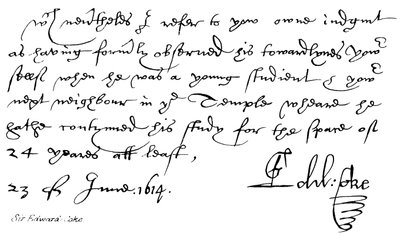 wch nevertheles I refer to yow owne iudgmt
as having formrly observed his towardlynes yowr
self when he was a young studient & yowr
next neighbour in ye Temple wheare he
hathe contynued his study for the space of
24 yeares att least,
23 of June. 1614.
Edw: Coke
Sir Edward Coke